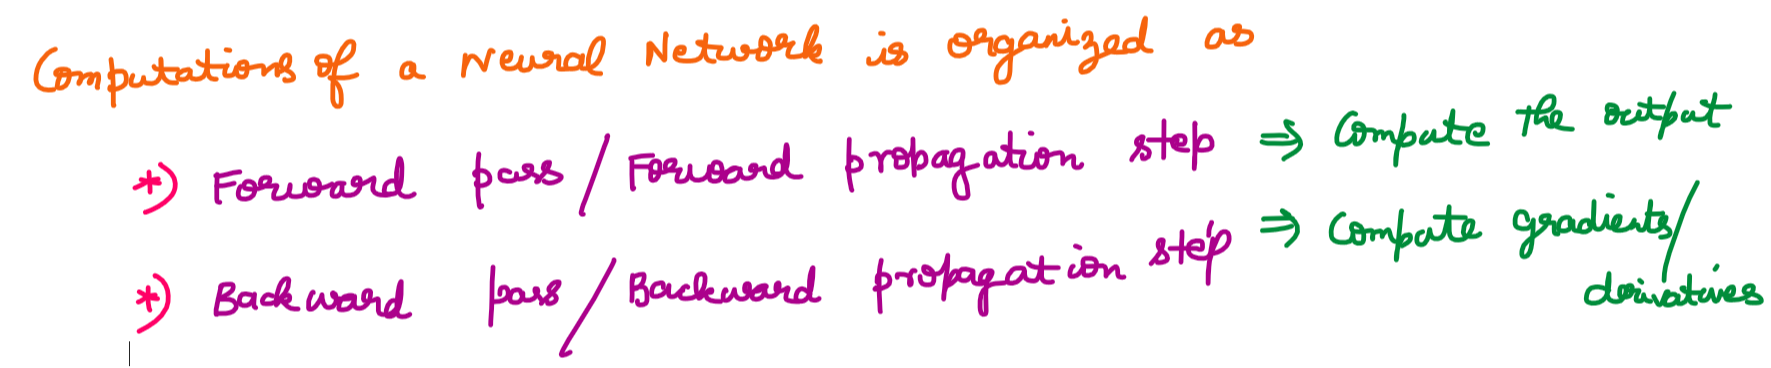 Computations of a Neural Network is organized as
*) Forward pass / Forward propagation step ⇒ Compute the output
*) Backward pass / Backward propagation step ⇒ Compute gradients/
derivatives